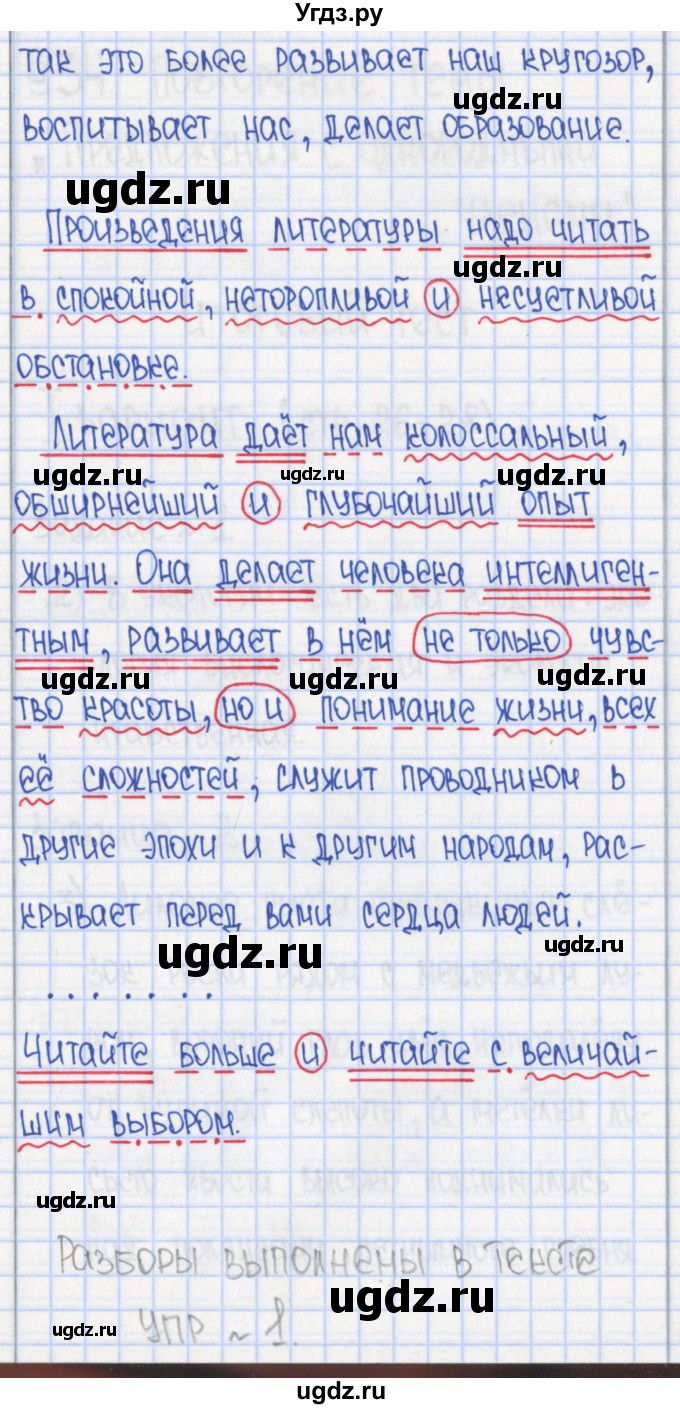 Угдз.ру
так это более развивает наш кругозор,
ugdz.ru
воспитывает нас, делает образование.
ugdz.ru
Произведения литературы надо читать
ugdz.ru
в спокойной, неторопливой и несуетливой
обстановке.
Литература даёт нам колоссальный,
ugdz.ru ugdz.ru ugdz.ru
обширнейший и глубочайший опыт
жизни. Она делает человека интеллиген-
тным, развивает в нём не только чувс-
ugdz.ru ugdz.ru ugdz.ru
тво красоты, но и понимание жизни, всех
её сложностей, служит проводником в
другие эпохи и к другим народам, рас-
крывает перед вами сердца людей.
ugdz.ru ugdz.ru
.......
Читайте больше и читайте с величай-
шим выбором.
ugdz.ru
Разборы выполнены в тексте
ugdz.ru
ugdz.ru упр ~ 1.
ugdz.ru